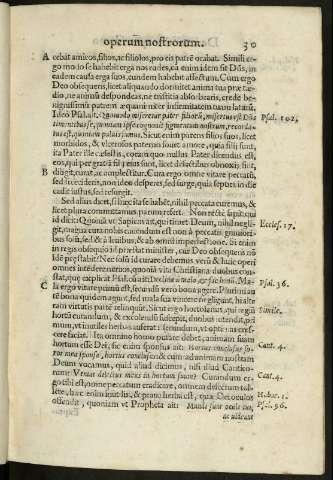 operum nostrorum. 30
A cebat amicos, filios, ac filiolos, pro eis patrē orabat. Simili er-
go modo se habebit erga nos rades, cū enim idem sit Dñs, in
eadem causa erga suos, eundem habebit affectum. Cum ergo
Deo obsequeris, licet aliquando dormitet anima tua præ tæ-
dio, ne animū despondeas, ne tristitia absorbearis, crede be-
nignissimū patrem æquanimiter infirmitatem tuam laturū.
Ideo Psal. ait. Quomodo miseretur pater filiorū, misertus est Dñs
timentibus se, quoniam ipse cognovit figmentum nostrum, recorda-
tus est, quoniam pulvis sumus. Sicut enim patres filios suos, licet
morbidos, & vlcerosos paterno fouet amore, quia filii sunt,
ita Pater ille cælestis, eorum quoque Pater dicendus est,
eos, qui per gratiā filii eius sunt, licet defectibus obnoxii sint,
B diligit, curat, ac complectitur. Cura ergo omne vitare peccatū,
sed si cecideris, non ideo desperes, sed surge, quia septies in die
cadit iustus, sed resurgit.
Sed alius dicet, si hæc ita se habēt, nihil peccata cure mus, &
licet plura committamus parum refert. Non rectè sapit, qui
id dicit: Quoniā vt Sapiens ait, qui timet Deum, nihil negligit.
magna cura nobis
bus solū, sed & à leuibus, & ab omni imperfectione. Si enim
in regis obsequio id præstat minister, cur Deo obsequens nō
idē præstabit? Nec solū id curare debemus verū & huic operi
omnes intēdere nervos, quoniā vita Christiana duobus con-
stat, quæ explicat Psal. cū ait: Declina à malo, & fac bonū. Ma-
C la ergo vitare primū est, secundū verò bona agere. Plurimi au
tē bona quidem agunt, sed mala sua vincere negligunt, hi alte
ram virtutis partē relinquūt. Sicut ergo hortolanus, qui regiū
hortū curandum, & excolendū suscepit, duobus intendit, pri-
mum, vt inutiles herbas auferat: secundum, vt optimas cres-
cere faciat. Ita omnino homo putare debet, animam suam
hortum esse Dei, sic enim sponsus ait: Hortus conclusus so-
ror mea sponsa, hortus conclusus: & cum ad animam nostram
Deum vocamus, quid aliud dicimus, nisi illud Cantico-
rum: Veniat delectus meus in hortum suum? Curandum er-
go tibi est, omne peccatum eradicare, omnem defectum tol-
lere, hæc enim inutilis, & praua herba est, quæ Dei oculos
offendit, quoniam vt Propheta ait: Mundi sunt oculi tui,
ac videant
Psal. 102.
Eccles. 17.
Psal. 36.
Simile.
Cant. 4.
Cant. 4.
Habac. 1.
Psal. 96.